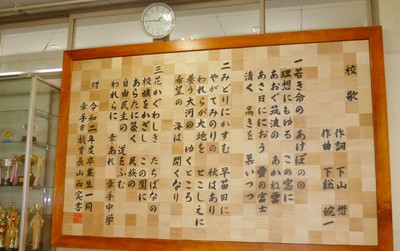 校歌
作詞 下山 懋
作曲 下總 皖一
一 若き命の あけぼのの
理想にもゆる この窓に
あおぐ筑波の あかね雲
あさ日ににおう 雪の富士
清く 高きを 慕いつつ
二 みどりにかすむ 早苗田に
やがてみのりの 秋はあり
われらが大地を とこしえに
養う大河の ゆくところ
希望の 海は 開くなり
三 花かぐわしき たちばなの
校旗をかざし この園に
あらたに築く 民族の
自由民主の 道をふむ
われらに 幸あれ 幸手中学
贈 令和二年度卒業生一同
幸手市教育長山西実書